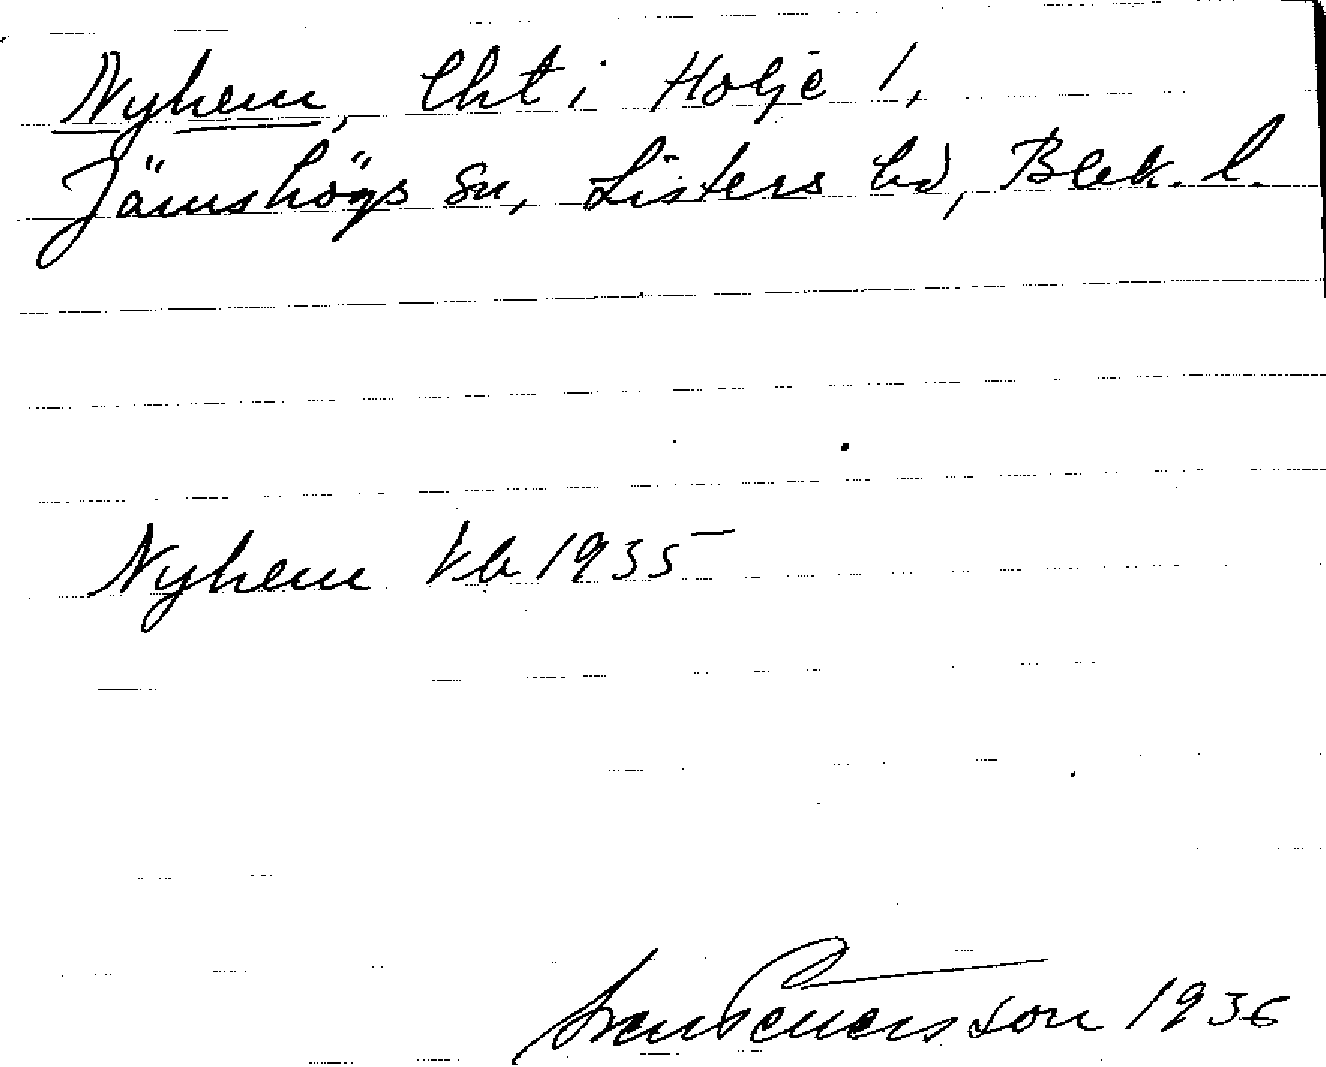 Nyhem, lht i Holje 1,
Jämshögs sn, Listers hd, Blek. l.
Nyhem kb 1935
Sven 1936